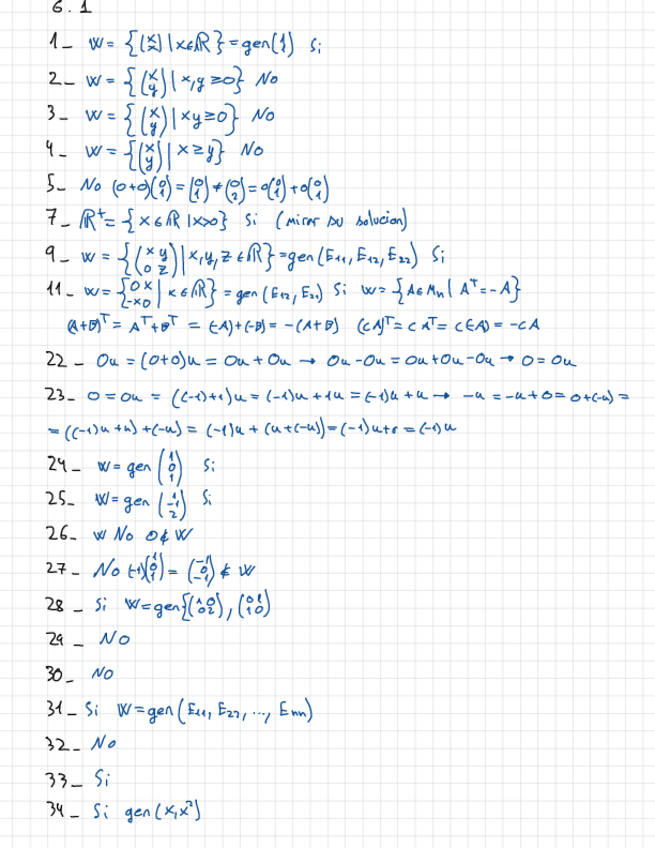 6.1
1_ W = {(x x) | x∈ℝ} = gen(1 1) Si
2_ W = {(x y) | x,y ≥0} No
3_ W = {(x y) | xy≥0} No
4_ W = {(x y) | x≥y} No
5_ No (0+0)(0 1) = (0 1) ≠ (0 2) = 0(0 1)+0(0 1)
7_ ℝ⁺= {x∈ℝ | x>0} Si (mirar su solucion)
9_ W = {(x y 0 z) | x,y,z∈ℝ} = gen(E₁₁, E₁₂, E₂₂) Si
11_ W = {0 x -x 0 | x∈ℝ} = gen (E₁₂, E₂₁) Si W = {A∈Mn | Aᵀ=-A}
(A+B)ᵀ = Aᵀ+Bᵀ = (-A)+(-B) = -(A+B) (cA)ᵀ = cAᵀ = c(-A) = -cA
22_ 0u = (0+0)u = 0u+0u → 0u-0u = 0u+0u-0u → 0=0u
23_ 0=0u = ((-1)+1)u = (-1)u+1u = (-1)u+u → -u = -u+0 = 0+(-u) =
= ((-1)u+u)+(-u) = (-1)u+(u+(-u)) = (-1)u+0 = (-1)u
24_ W = gen (1 0 1) Si
25_ W = gen (1 -1 2) Si
26_ W No 0∉W
27_ No (-1)(1 0 1) = (-1 0 -1) ∉ W
28_ Si W=gen{(1 0 0 2), (0 1 1 0)
29_ NO
30_ NO
31_ Si W=gen(E₁₁, E₂₂, ..., Enn)
32_ No
33_ Si
34_ Si gen(x,x²)